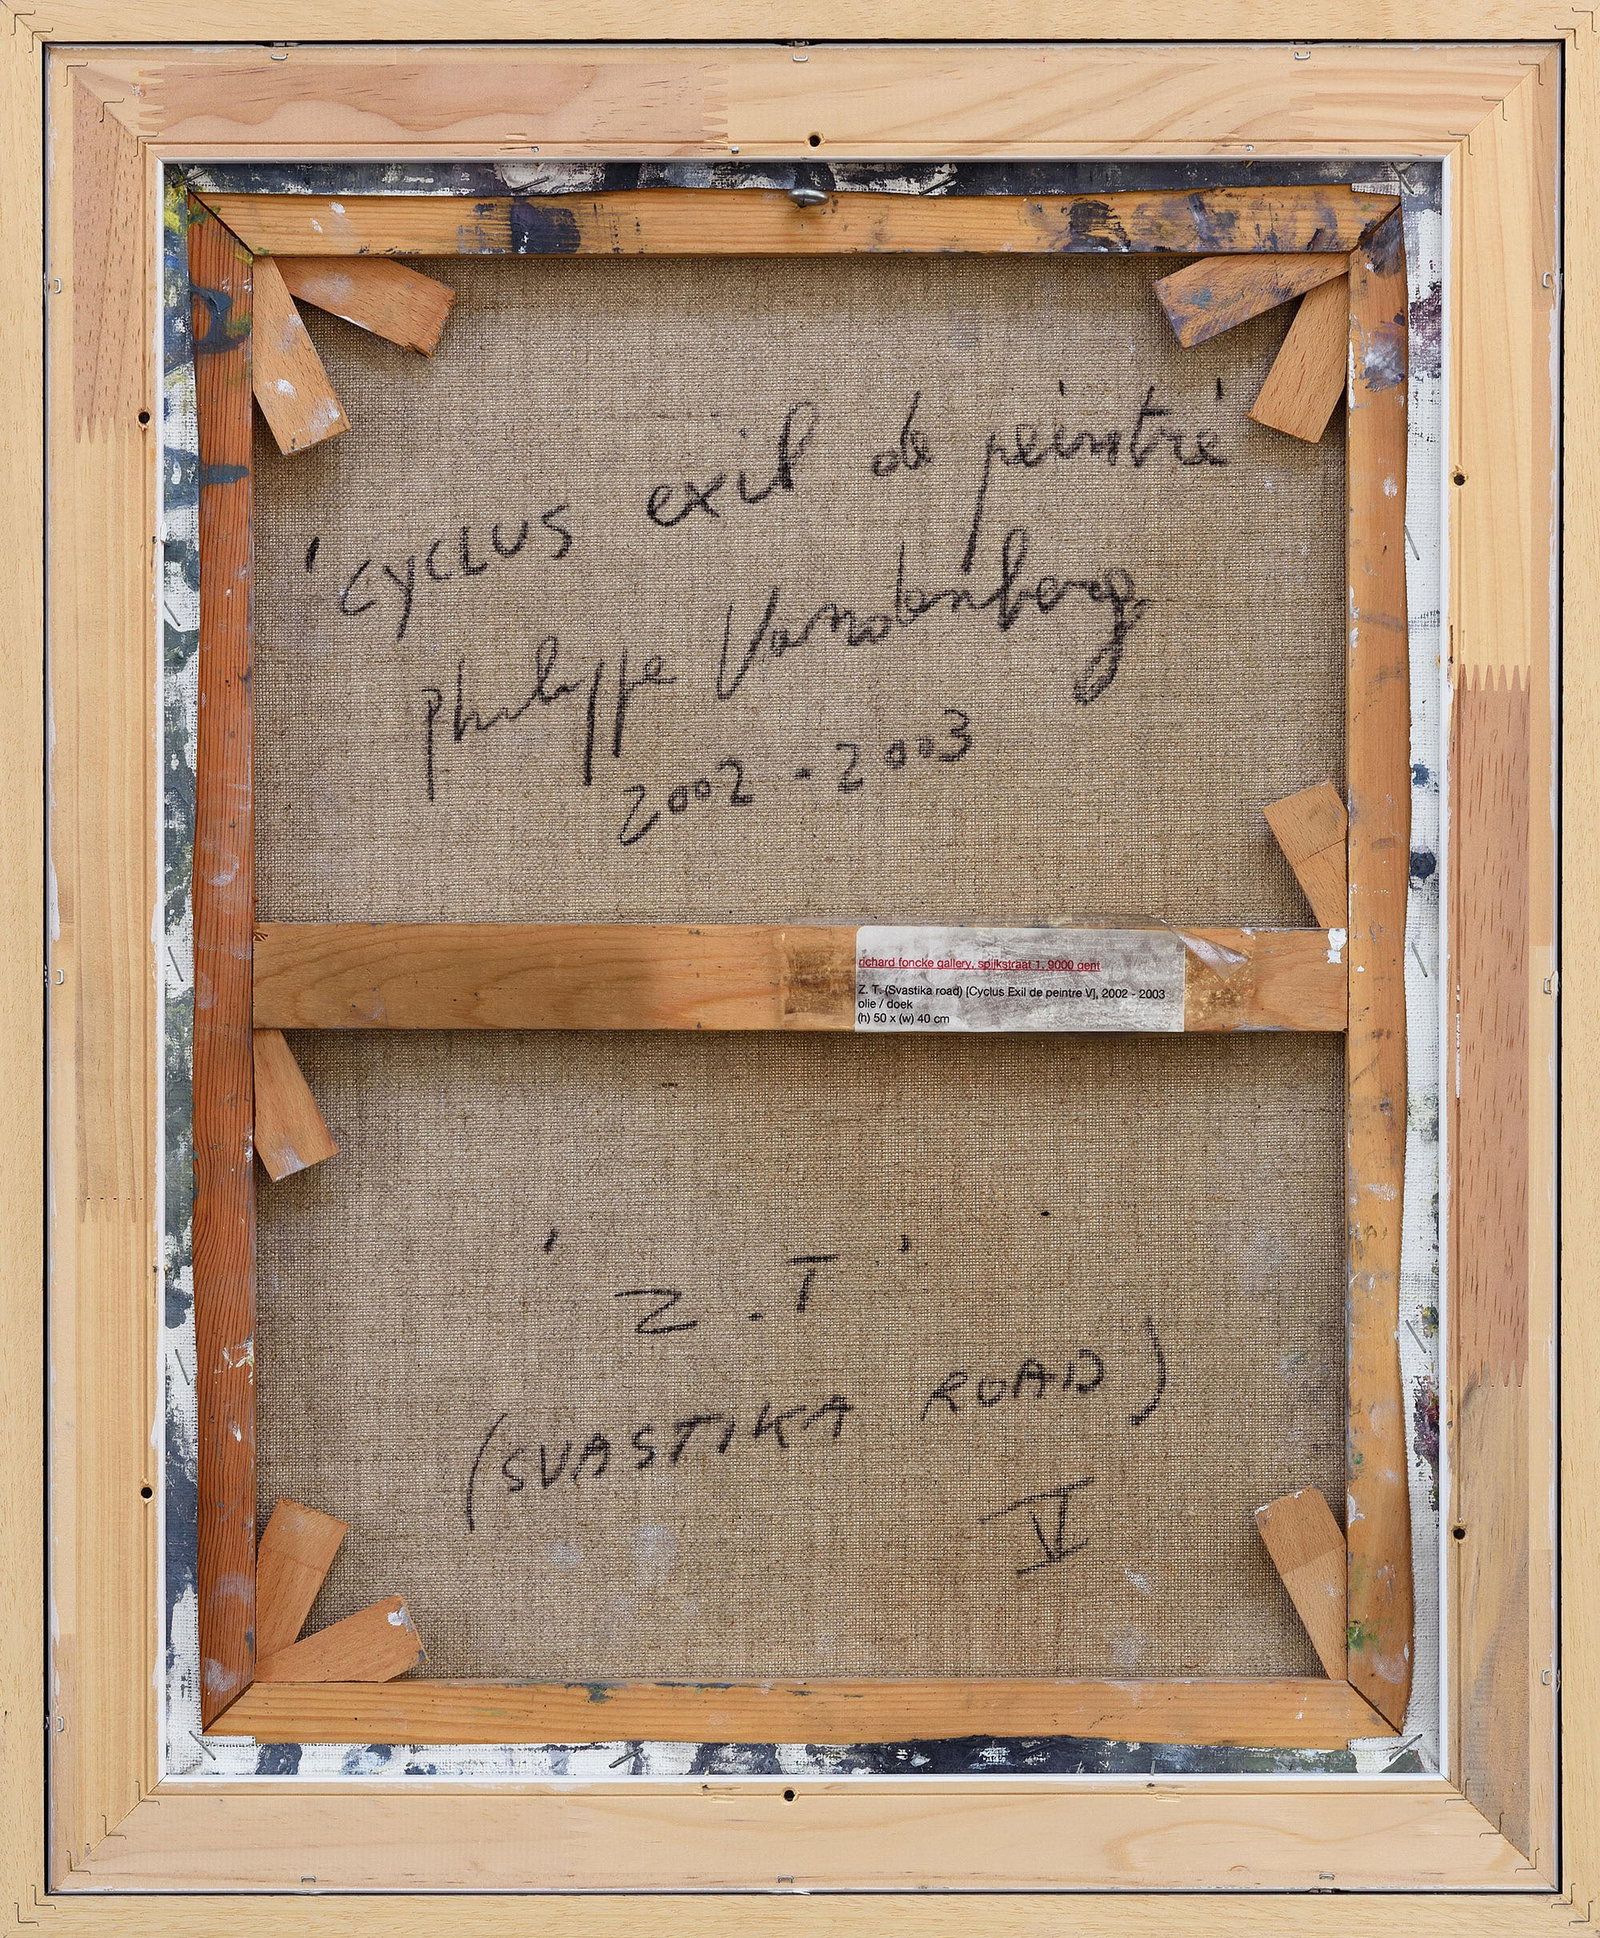 'CYCLUS exil de peintre'
Philippe Vandenberg
2002 - 2003
richard foncke gallery, spijkstraat 1, 9000 gent
Z. T. (Svastika road) [Cyclus Exil de peintre V], 2002 - 2003
olie / doek
(h) 50 x (w) 40 cm
'Z.T'
(SVASTIKA ROAD)
V